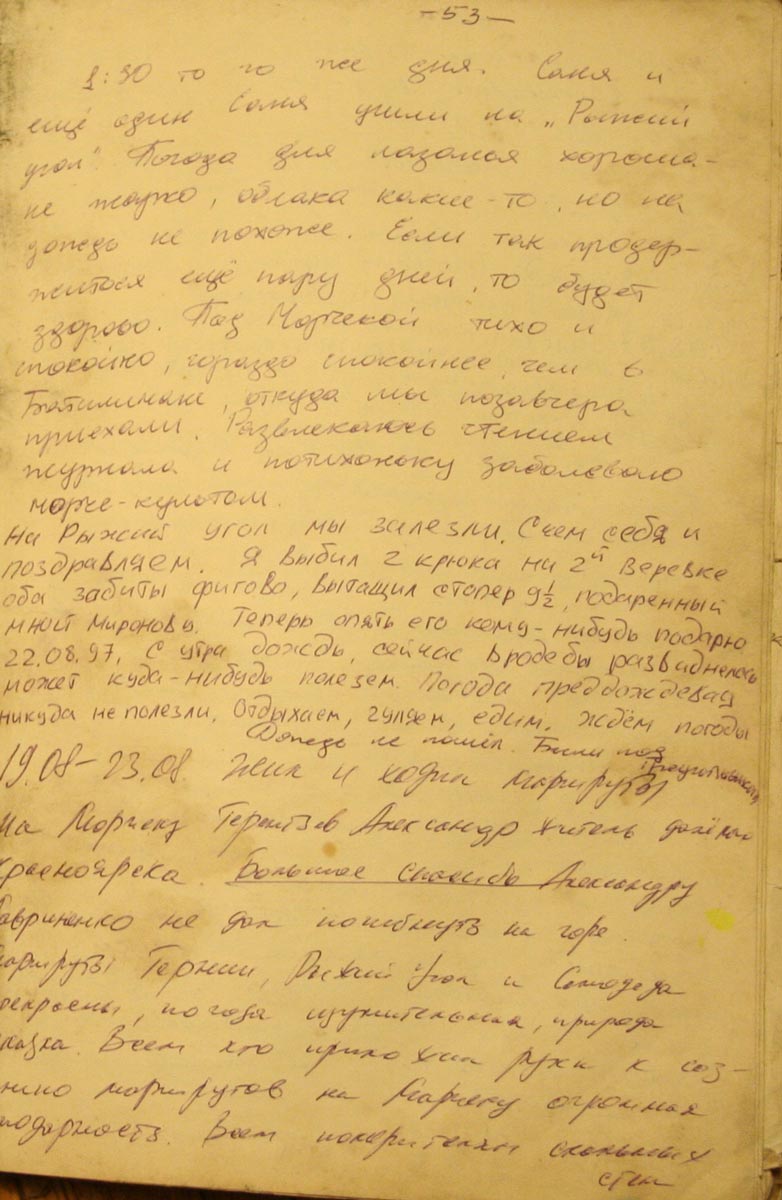 -53-
1:30 то го же дня. Саня и
ещё один Саня ушли на "Рыжий
угол". Погода для лазанья хороша-
не жарко, облака какие-то, но на
дождь не похоже. Если так продер-
жится ещё пару дней, то будет
здорово. Под Морчекой тихо и
спокойно, гораздо спокойнее, чем в
Батилимане, откуда мы позавчера
приехали. Развлекаюсь чтением
журнала и потихоньку заболеваю
морче-культом.
На Рыжий угол мы залезли. Счем себя и
поздравляем. Я выбил 2 крюка на 2ой веревке
оба забиты фигово, вытащил стопер 9½, подаренный
мной Миронову. Теперь опять его кому-нибудь подарю
22.08.97. С утра дождь, сейчас вродебы развиднелось
может куда-нибудь полезем. Погода преддождевая
никуда не полезли. Отдыхаем, гуляем, едим. Ждём погоды
Дождь не пошёл. Были под
19.08-23.08. Жил и ходил маршруты
на Морчеку Александр житель далёкого
Красноярска. Большое спасибо Александру
Гавриненко не дал погибнуть на горе.
маршруты Рыжий Угол и
прекрасны, погода изумительная, природа
сказка. Всем кто приложил руки к соз-
нию маршрутов на Марчеку огромная
годарность. Всем покорителям скальных
стен